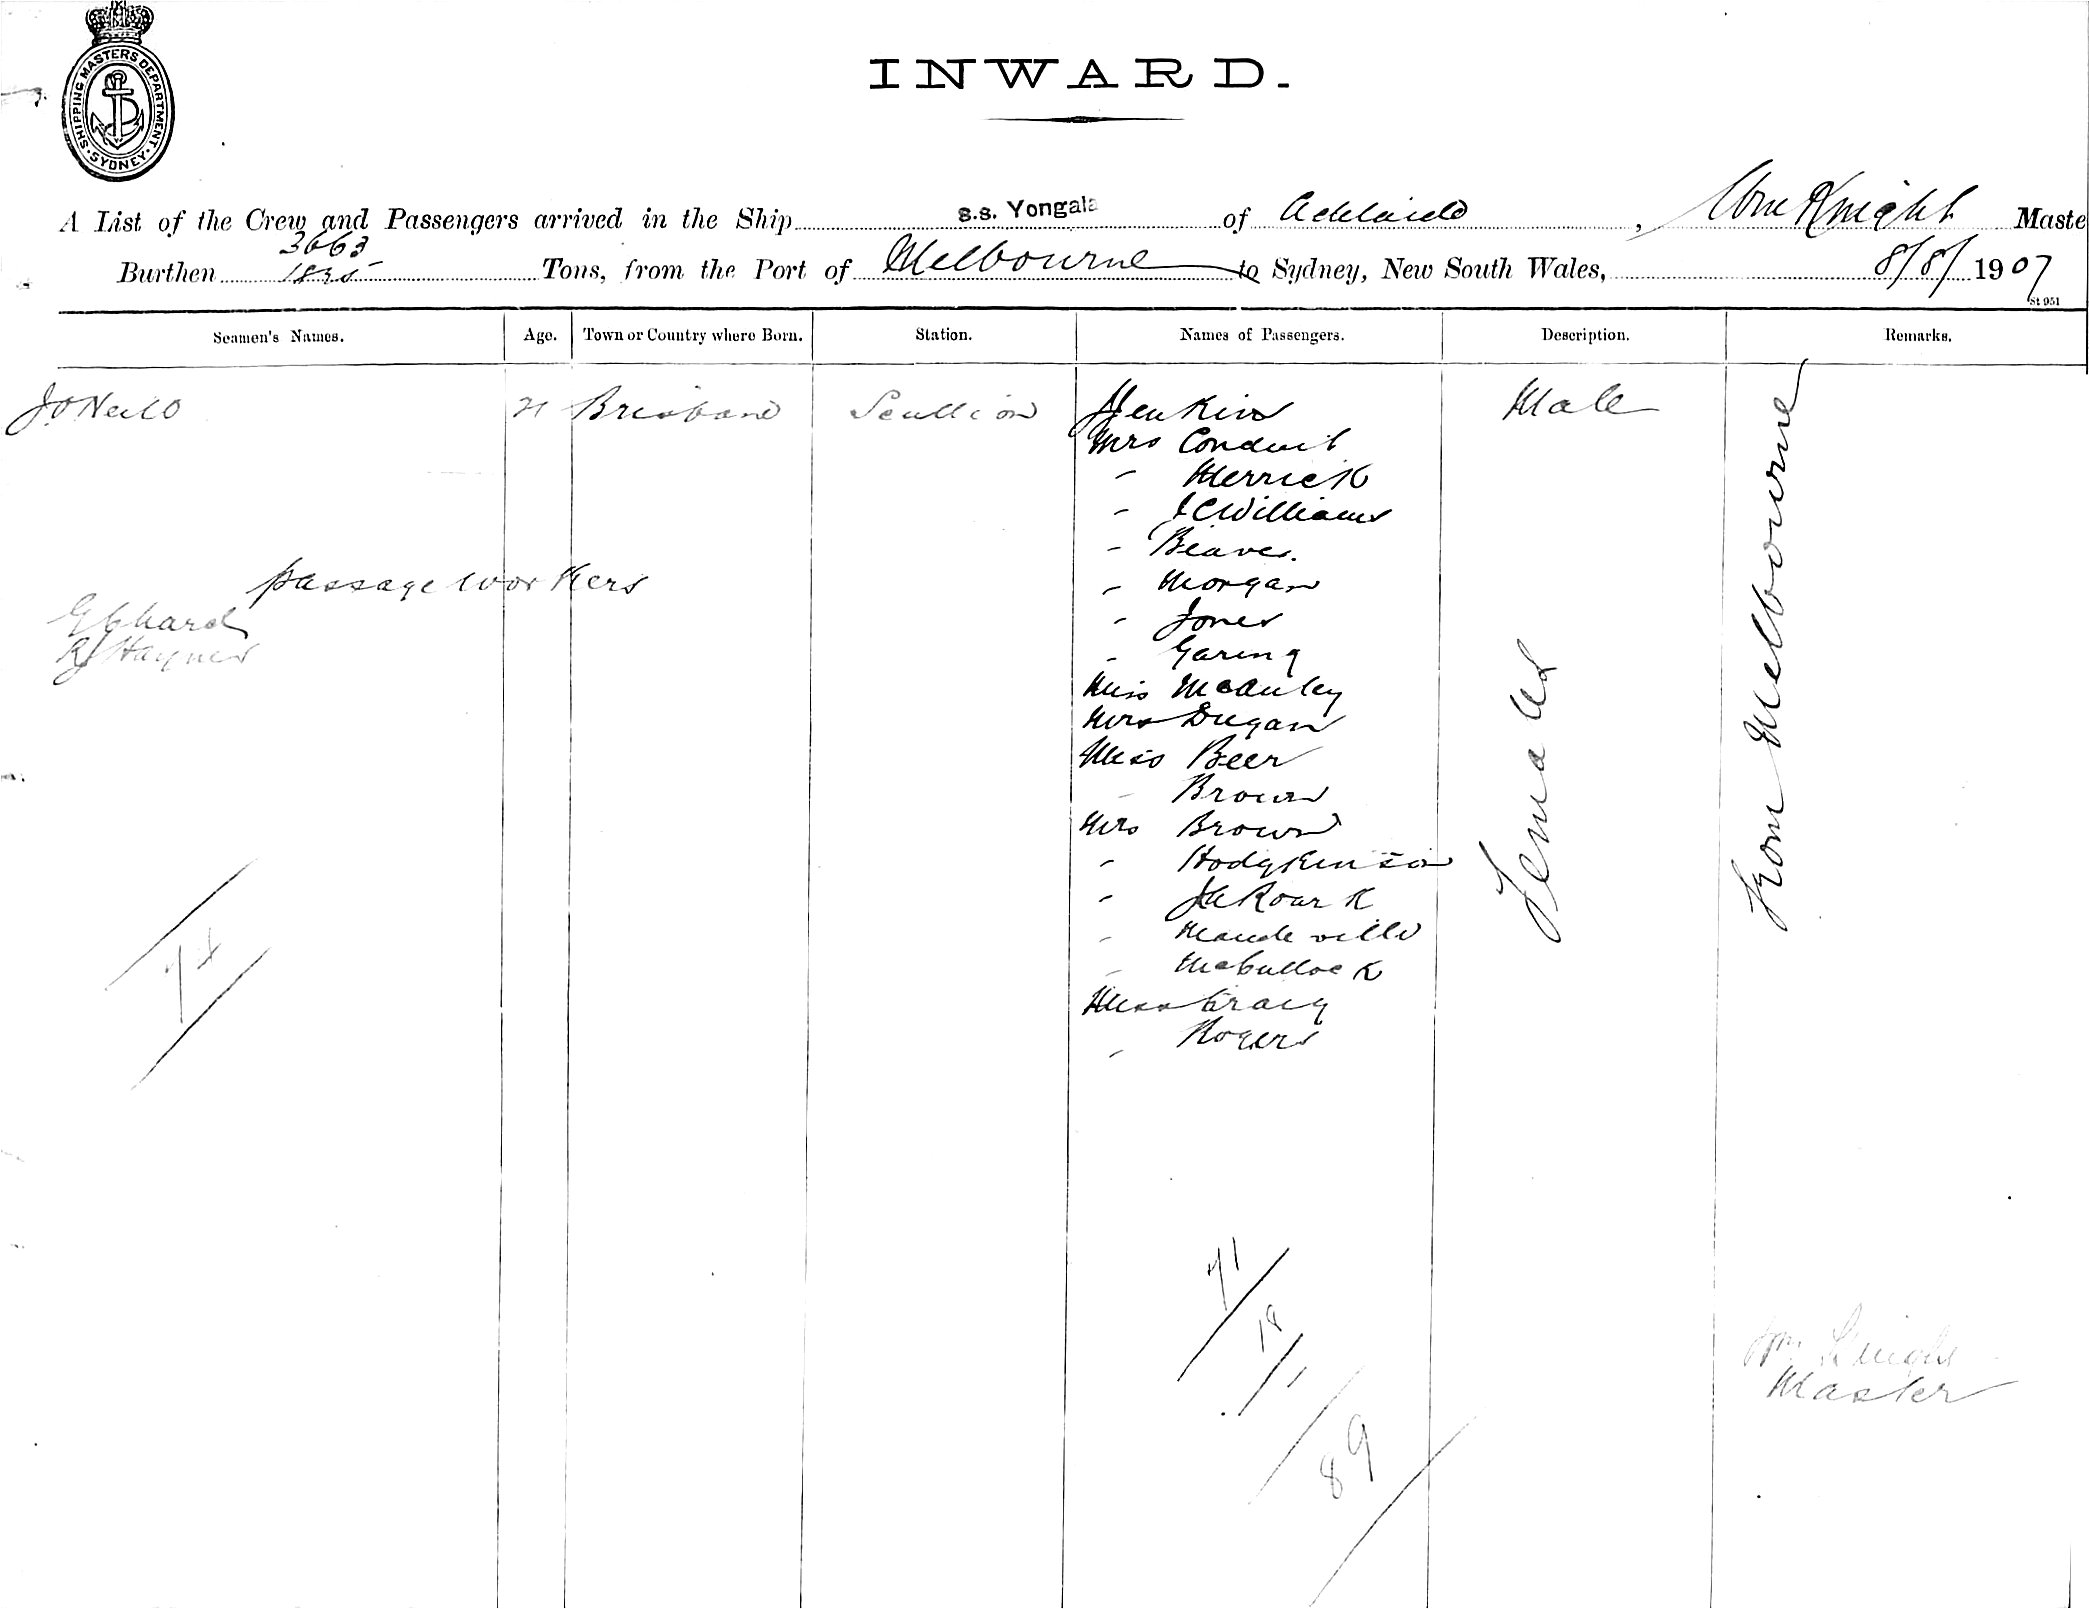 SHIPPING MASTERS DEPARTMENT. SYDNEY.
INWARD.
A List of the Crew and Passengers arrived in the Ship s.s. Yongala of Adelaide, Wm Knight Maste
3663
Burthen 1825 Tons, from the Port of Melbourne to Sydney, New South Wales, 8/8/1907
St 951
Seamen's Names. Age. Town or Country where Born. Station. Names of Passengers. Description. Remarks.
J O'Neill 21 Brisbane Scullion Jenkin Male
Mrs Conduit
" Merrick
" J C Williams
" Beaver.
passage workers " Morgan
G Chard " Jones
R J Haynes " Garing
Miss McAuley
Mrs Dugan
Miss Beer
" Brown
Mrs Brown
" Hodgkinson
" Roark
" Mandeville
" McCullock
Miss Craig
" Rogers
Females
From Melbourne
74
71
18
1
89
Wm Knight
Master